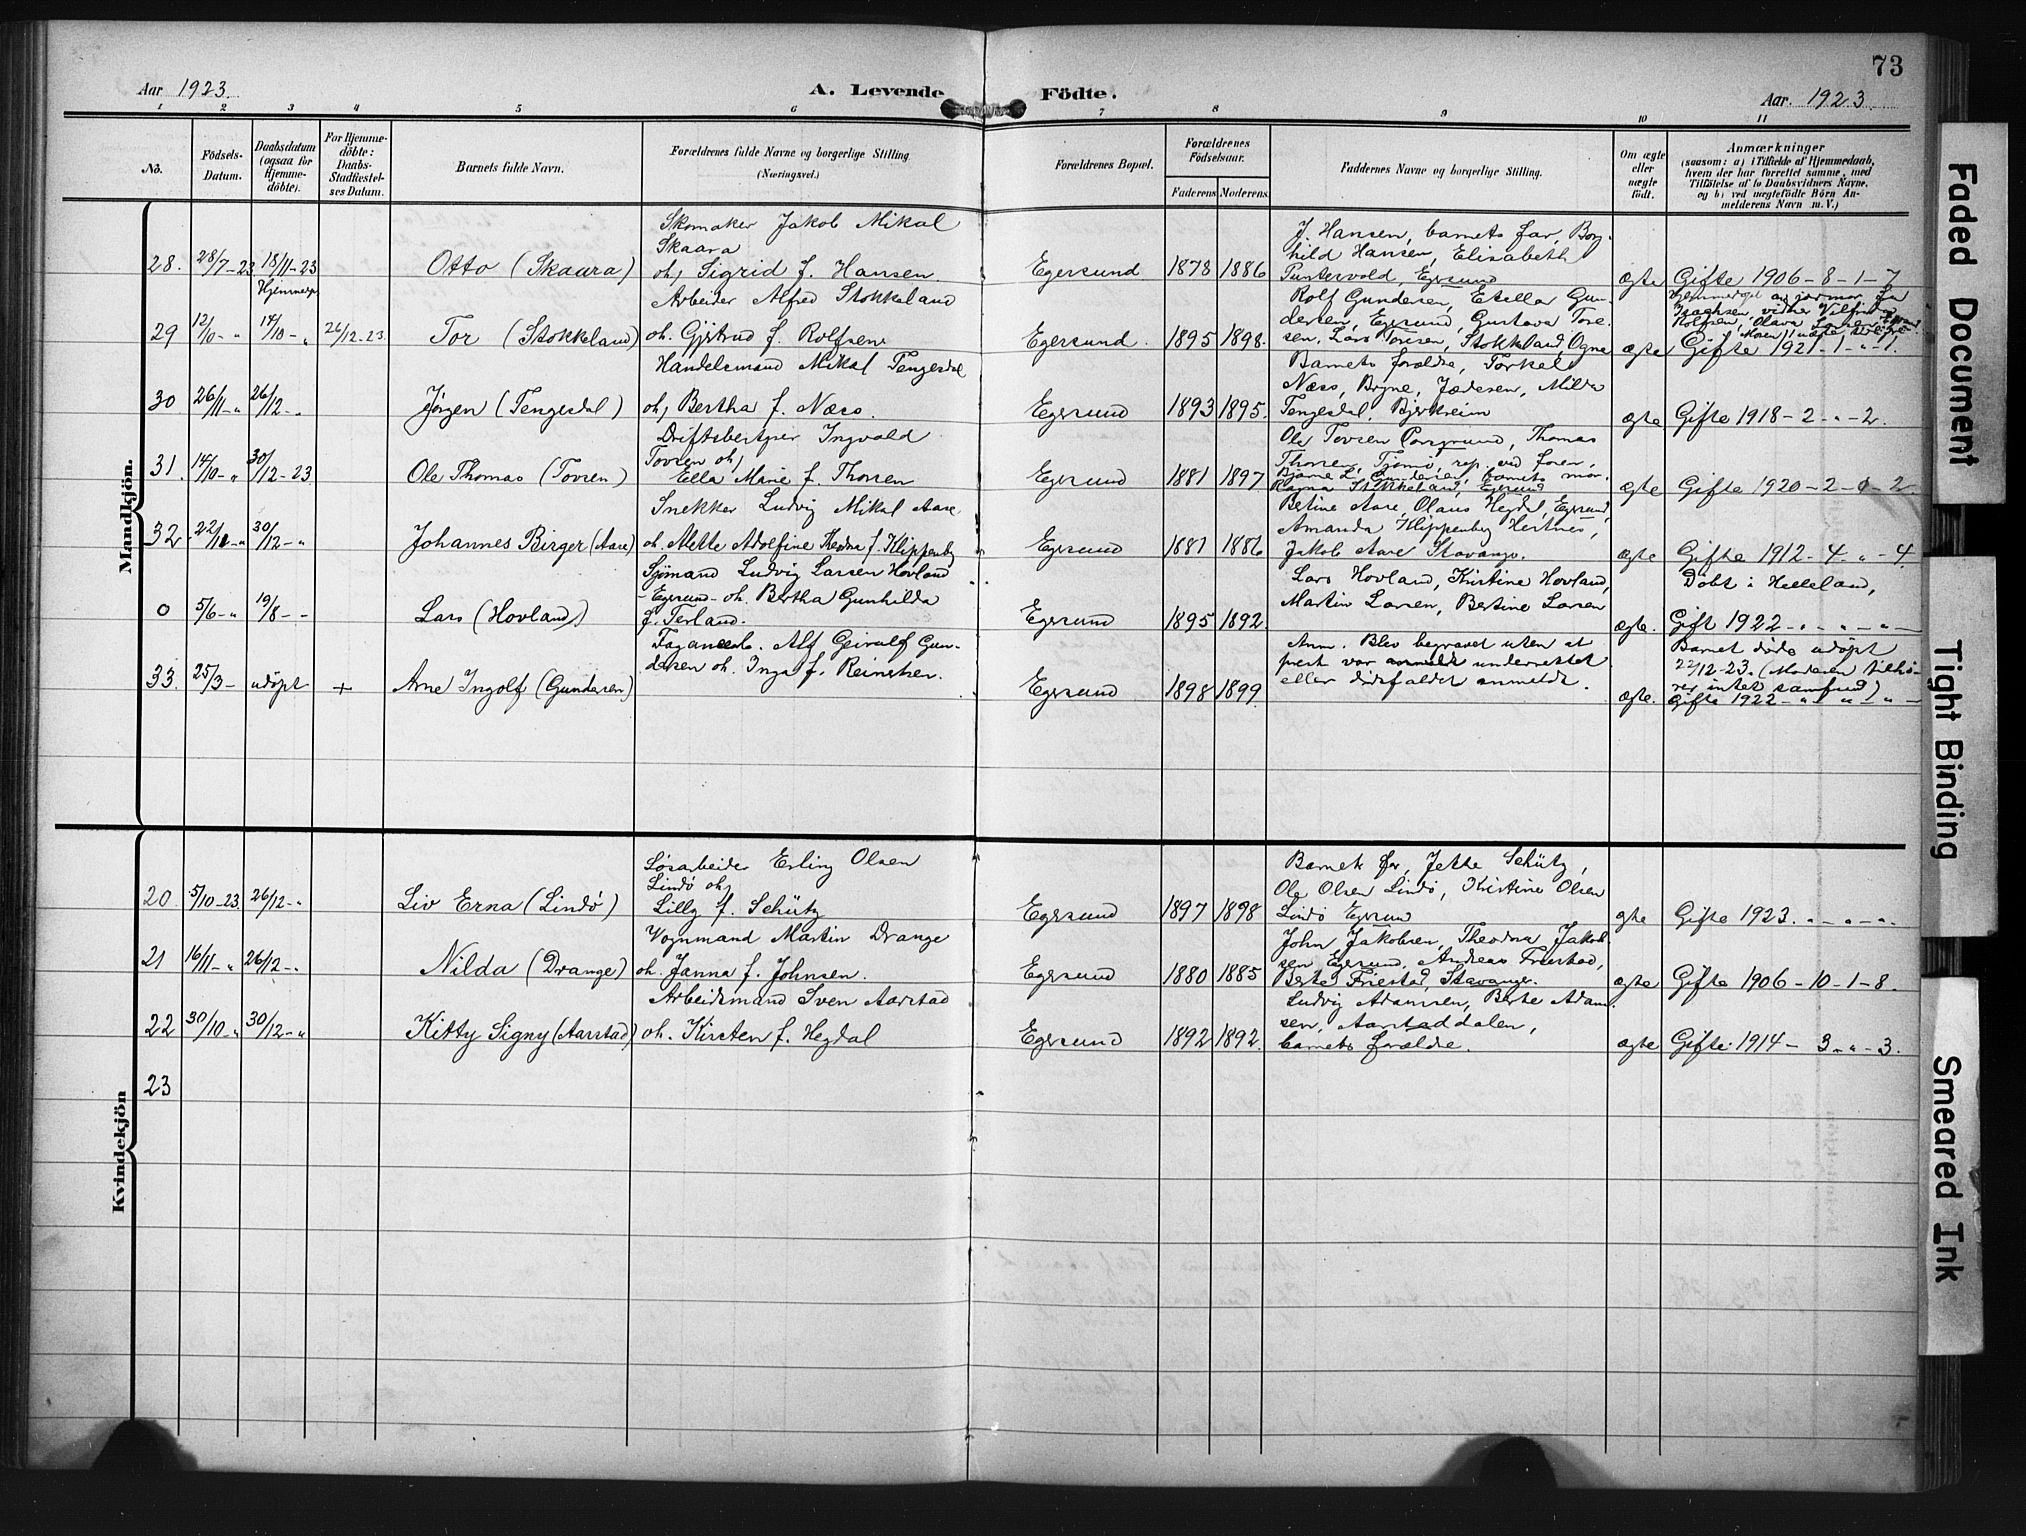 73
Aar 1923.
A. Levende Födte.
Aar. 1923.
1 2 3 4 5 6 7 8 9 10 11
No.
Födsels-
Datum.
Daabsdatum
(ogsaa for
Hjemme-
döbte).
For Hjemme-
döbte:
Daabs-
Stadfæstel-
ses Datum.
Barnets fulde Navn.
Forældrenes fulde Navne og borgerlige Stilling
(Næringsvei.)
Forældrenes Bopæl.
Forældrenes
Födselsaar.
Faderens Moderens
Faddernes Navne og borgerlige Stilling.
Om ægte
eller
uægte
födt.
Anmærkninger
(saasom: a) i Tilfælde af Hjemmedaab,
hvem der har forrettet samme, med
Tilföielse af to Daabsvidners Navne,
og b) ved uægtefödte Börn An-
melderens Navn m. V.)
Mandkjön.
28. 28/7-23 18/11-23
Otto (Skaara)
Skomaker Jakob Mikal
Skaara
oh, Sigrid f. Hansen
Egersund 1878 1886
J. Hansen, barnets far, Borg-
hild Hansen, Elisabeth
Puntervold, Egersund
ægte Gifte 1906-8-1-7
29 12/10 - " Hjemmedp 14/10 - " 26/12-23.
Tor (Stokkeland)
Arbeider Alfred Stokkeland
oh. Gjertrud f. Rolfsen
Egersund. 1895 1898.
Rolf Gundersen, Estella Gun-
dersen, Egersund, Gustava Tore-
sen, Lars Toresen, Stokkeland, Ogne
ægte Gifte 1921-1-"-1.
30 26/11-" 26/12-"
Jörgen (Tengesdal)
Handelsmand Mikal Tengesdal
oh, Bertha f. Næss.
Egersund 1893 1895.
Barnets forældre, Torkel
Næss, Bryne, Jæderen, Milda
Tengesdal, Bjerkreim
ægte Gifte 1918-2-"-2.
31. 14/10-" 30/12-23
Ole Thomas (Tovsen)
Driftsbestyrer Ingvald
Tovsen oh,
Ella Marie f. Thorsen
Egersund 1881 1897
Ole Tovsen Porsgrund, Thomas
Thorsen, Tjømö, rep. ved foren,
Bjarne L. Gundersen, barnets mor.
Ragna Stokkeland, Egersund
ægte Gifte 1920-2-0-2.
32 22/11-" 30/12-"
Johannes Birger (Aase)
Snekker Ludvig Mikal Aase
oh. Mette Adolfine Theodna f. Klippenberg
Egersund 1881 1886
Bertine Aase, Olaus Hegdal, Egersund,
Amanda Klippenberg Hertnes,
Jakob Aase Stavanger.
ægte Gifte 1912-4-"-4
0 5/6-" 19/8--
Lars (Hovland)
Sjömand Ludvig Larsen Hovland
-Egersund- oh. Bertha Gunhilda
f. Terland.
Egersund 1895 1892.
Lars Hovland, Kirstine Hovland,
Martin Larsen, Bertine Larsen
ægte.
Döbt i Helleland,
Gift 1922 - " - " - " -
33. 25/3- udöpt +
Arne Ingolf (Gundersen)
Alf Geirulf Gun-
dersen oh. Inga f. Reinertsen.
Egersund 1898 1899
Anm. Blev begravet uten at
prest var anmeldt underrettet
eller dödsfaldet anmeldt.
ægte.
Barnet döde udöpt
22/12-23. (Moderen tilhö-
rer intet samfund)
Gifte 1922 - " - " - " -
Kvindekjön
20. 5/10-23. 26/12-"
Liv Erna (Lindö)
Lösarbeider Erling Olsen
Lindö oh,
Lilly f. Schütz
Egersund 1897 1898
Barnets far, Jette Schütz,
Ole Olsen Lindö, Kristine Olsen
Lindö Egersun
ægte Gifte 1923. - " - " - "-
21 16/11-" 26/12-"
Nilda (Drange)
Vognmand Martin Drange
oh. Janna f. Johnsen.
Egersund 1880 1885
John Jakobsen, Theodna Jakob-
sen Egersund, Andreas Friestad,
Berte Friestad, Stavanger.
ægte Gifte 1906-10-1-8.
22 30/10-" 30/12-"
Kitty Signy (Aarstad)
Arbeidsmand Sven Aarstad
oh. Kirsten f. Hegdal
Egersund 1892 1892.
Ludvig Adamsen, Berte Adam-
sen, Aarstaddalen,
barnets forældre.
ægte Gifte 1914-3-"-3.
23
Faded Document
Tight Binding
Smeared Ink